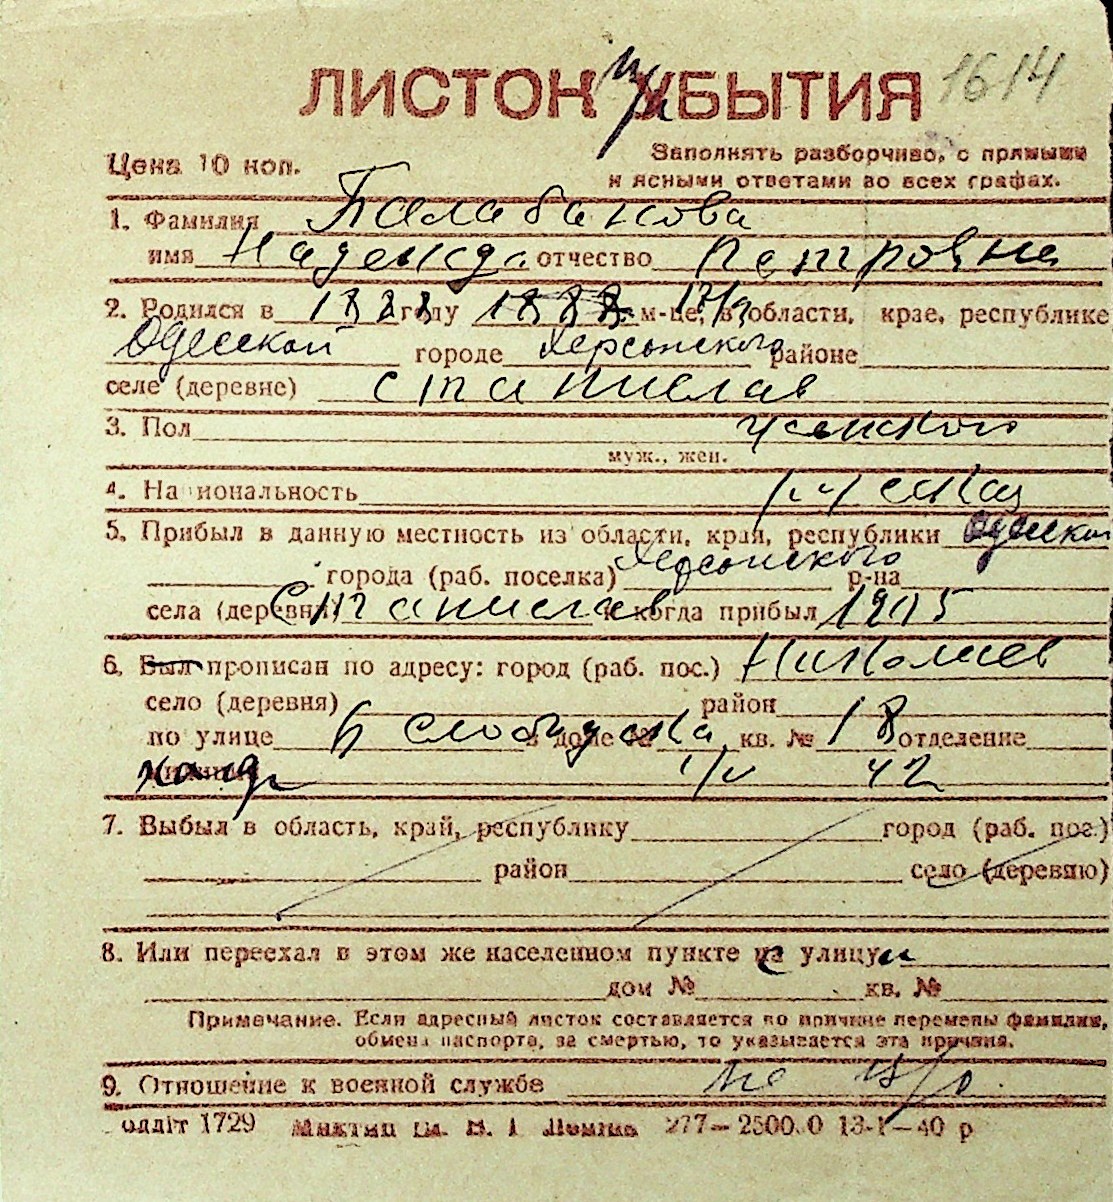 ЛИСТОК УБЫТИЯ 1614
Цена 10 коп.
Заполнять разборчиво, с прямыми
и ясными ответами во всех графах.
1. Фамилия Балабанова
имя Надежда отчество Петровна
2. Родился в 1888 году 1888 м-це, в области, крае, республике
Одесской городе Херсонского районе
селе (деревне) Станислав
3. Пол женского
муж., жен.
4. Национальность русская
5. Прибыл в данную местность из области, край, республики Одесской
города (раб. поселка) Херсонского р-на
села (деревни) Станислав и когда прибыл 1905
6. Был прописан по адресу: город (раб. пос.) Николаев
село (деревня) район
по улице Б слободска в доме № кв. № 18 отделение
42
7. Выбыл в область, край, республику город (раб. пос.)
район село (деревню)
8. Или переехал в этом же населенном пункте на улицу
дом № кв. №
Примечание. Если адресный листок составляется по причине перемены фамилии,
обмена паспорта, за смертью, то указывается эта причина.
9. Отношение к военной службе не в/о
обліт 1729 277—2500.0 13-1—40 р